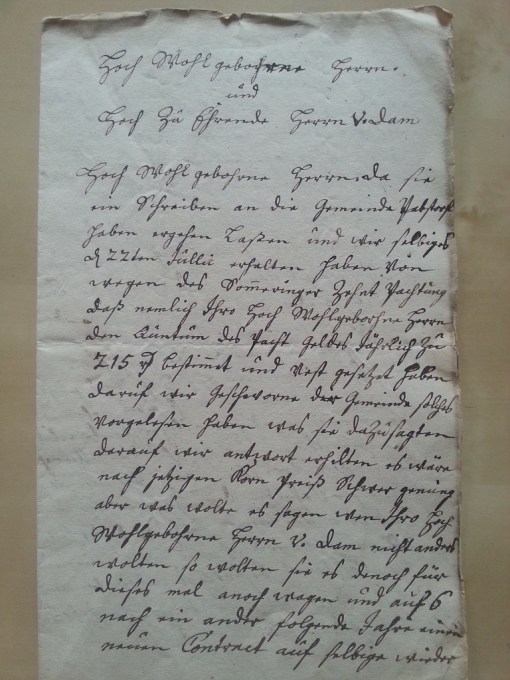 Hoch Wohl gebohrne Herrn.
und
Hoch Zu Ehrende Herrn V. Dam
Hoch Wohl gebohrne Herrn. da sie
ein Schreiben an die Gemeinde Pabstorf
haben ergehen Laßen und wir selbiges
d 22ten Jullii erhalten haben von
wegen des Sommeringer Zehnt Pachtung
daß nemlich Ihro Hoch Wohlgebohrne Herrn
den Quantum des Pacht Geldes Jährlich Zu
215 bestimmet und Vest gesetzet haben
darauf wir Geschworne der Gemeinde solches
vorgelesen haben was sie dazu sagten
darauf wir antwort erhilten es wäre
nach jetzigen Korn Preiß Schwer genung
aber was wolte es sagen wen Ihro Hoch
Wohlgebohrne Herrn V. Dam nicht anders
wolten so wolten sie es denoch für
dieses mal anoch wagen und auf 6
nach ein ander folgende Jahre einen
neuen Contract auf selbige wieder